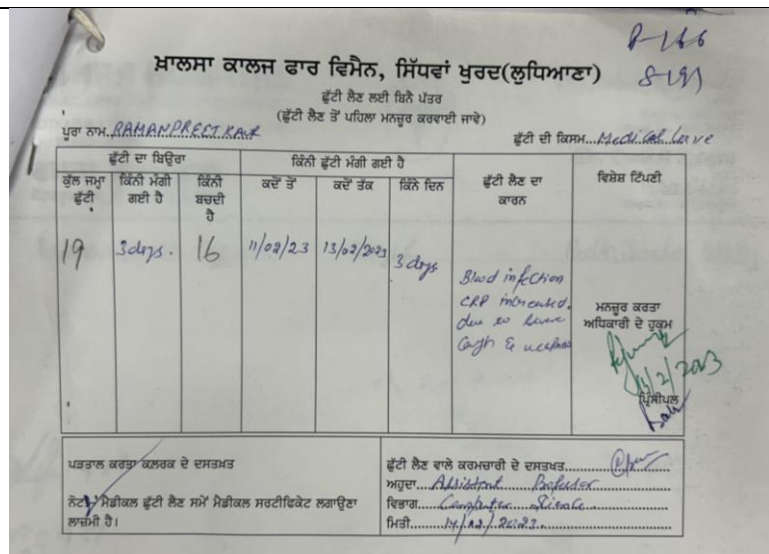 P-166
ਖ਼ਾਲਸਾ ਕਾਲਜ ਫਾਰ ਵਿਮੈਨ, ਸਿੱਧਵਾਂ ਖੁਰਦ(ਲੁਧਿਆਣਾ)
S-191
ਛੁੱਟੀ ਲੈਣ ਲਈ ਬਿਨੈ ਪੱਤਰ
(ਛੁੱਟੀ ਲੈਣ ਤੋਂ ਪਹਿਲਾ ਮਨਜ਼ੂਰ ਕਰਵਾਈ ਜਾਵੇ)
ਪੂਰਾ ਨਾਮ..RAMANPREET KAUR
ਛੁੱਟੀ ਦੀ ਕਿਸਮ...Medical leave
ਛੁੱਟੀ ਦਾ ਬਿਊਰਾ
ਕਿੰਨੀ ਛੁੱਟੀ ਮੰਗੀ ਗਈ ਹੈ
ਛੁੱਟੀ ਲੈਣ ਦਾ
ਕਾਰਨ
ਵਿਸ਼ੇਸ਼ ਟਿੱਪਣੀ
ਕੁੱਲ ਜਮ੍ਹਾ
ਛੁੱਟੀ
ਕਿੰਨੀ ਮੰਗੀ
ਗਈ ਹੈ
ਕਿੰਨੀ
ਬਚਦੀ
ਹੈ
ਕਦੋਂ ਤੋਂ
ਕਦੋਂ ਤੱਕ
ਕਿੰਨੇ ਦਿਨ
19
3days.
16
11/02/23
13/02/2023
3 days
Blood infection
CRP increased.
due to
Cough &
ਮਨਜ਼ੂਰ ਕਰਤਾ
ਅਧਿਕਾਰੀ ਦੇ ਹੁਕਮ
13/2/2023
ਪ੍ਰਿੰਸੀਪਲ
ਪੜਤਾਲ ਕਰਤਾ ਕਲਰਕ ਦੇ ਦਸਤਖ਼ਤ
ਨੋਟ:- ਮੈਡੀਕਲ ਛੁੱਟੀ ਲੈਣ ਸਮੇਂ ਮੈਡੀਕਲ ਸਰਟੀਫਿਕੇਟ ਲਗਾਉਣਾ
ਲਾਜ਼ਮੀ ਹੈ।
ਛੁੱਟੀ ਲੈਣ ਵਾਲੇ ਕਰਮਚਾਰੀ ਦੇ ਦਸਤਖਤ
ਅਹੁਦਾ....Assistant Professor
ਵਿਭਾਗ......Computer Science
ਮਿਤੀ........14/02/2023